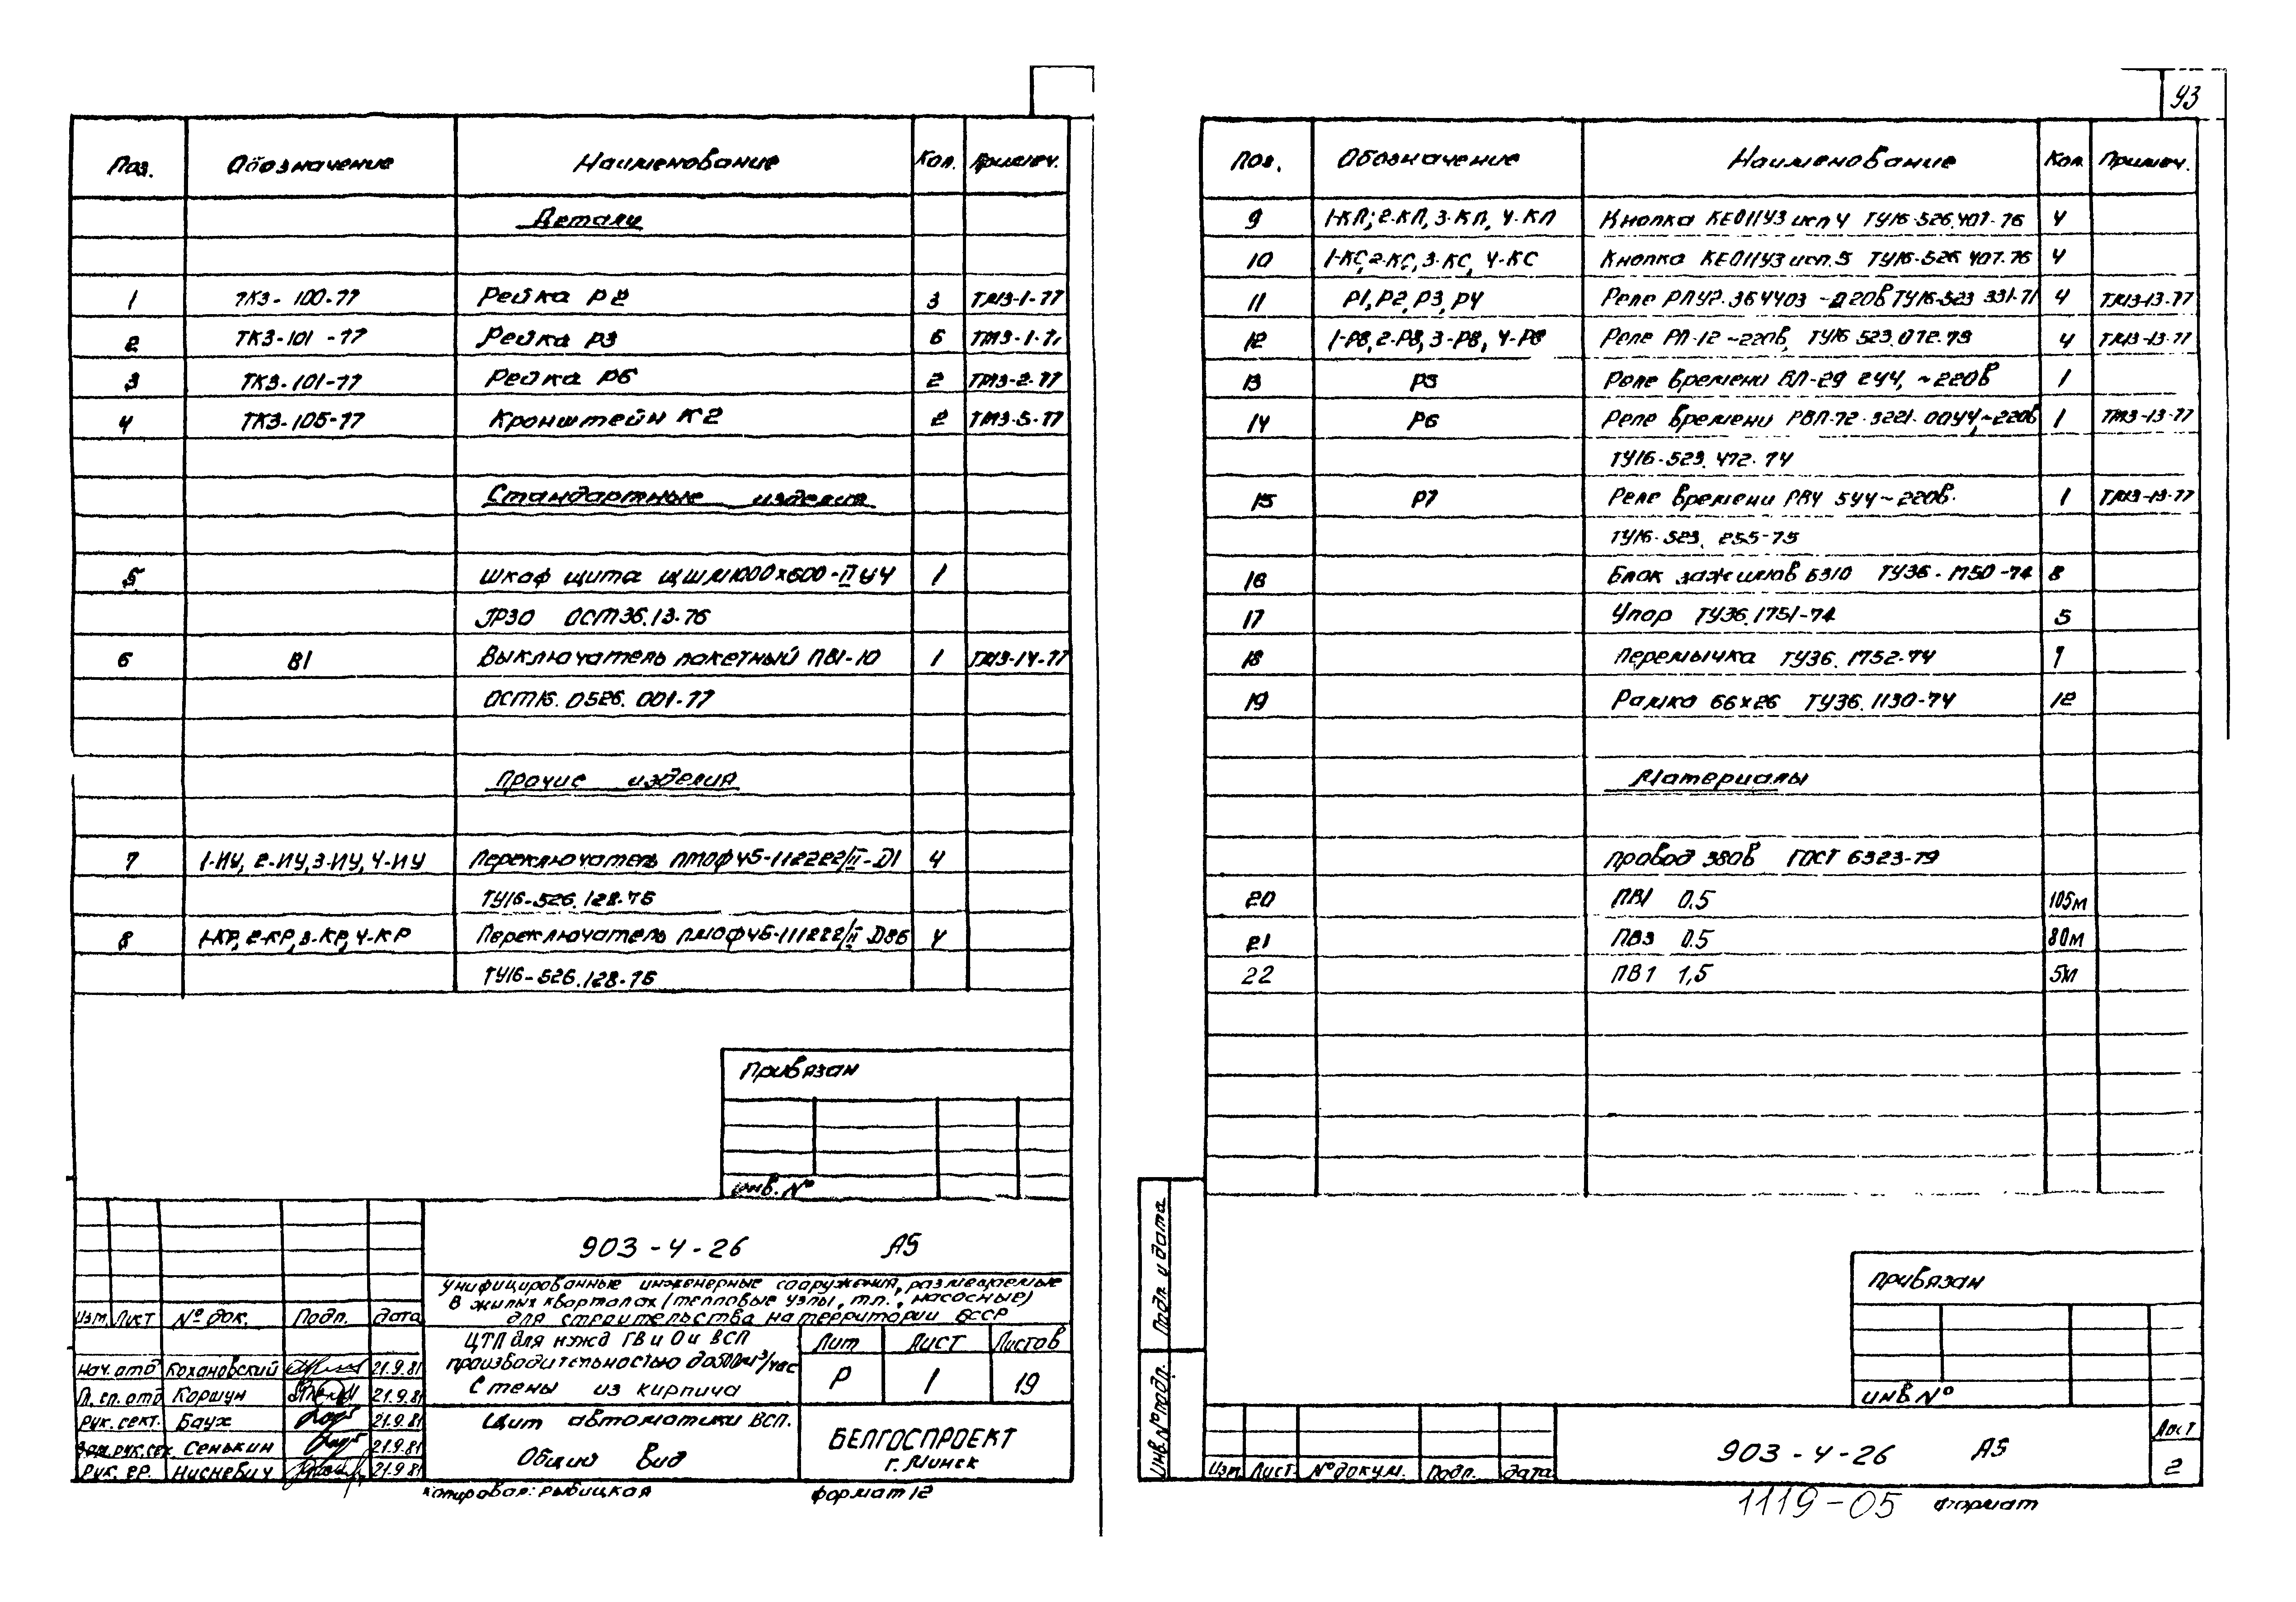 Поз. Обозначение Наименование Кол. Примеч.
Детали
1 ТКЗ-100-77 Рейка Р2 3 ТМЗ-1-77
2 ТКЗ-101-77 Рейка Р3 6 ТМЗ-1-77
3 ТКЗ-101-77 Рейка Р6 2 ТМЗ-2-77
4 ТКЗ-105-77 Кронштейн К2 2 ТМЗ-5-77
Стандартные изделия
5 Шкаф щита ЩШМ1000х600-II УЧ 1
JP30 ОСТ36.13-76
6 В1 Выключатель пакетный ПВ1-10 1 ТМЗ-14-77
ОСТ16.0526.001-77
Прочие изделия
7 1-ИУ, 2-ИУ, 3-ИУ, 4-ИУ Переключатель ПМОФ45-112222/II-Д1 4
ТУ16-526.128-76
8 1-КР, 2-КР, 3-КР, 4-КР Переключатель ПМОФ45-111222/II Д36 4
ТУ16-526.128-76
Привязан
инв. №
903-4-26 А5
Унифицированные инженерные сооружения, размещаемые
в жилых кварталах (тепловые узлы, т.п., насосные)
для строительства на территории БССР
Изм. Лист № док. Подп. Дата
ЦТП для нужд ГВ и О и ВСП
производительностью до 500м³/час
Стены из кирпича
Лит Лист Листов
Р 1 19
Нач. отд Кохановский 21.9.81
Гл. сп. отд Коршун 21.9.81
Рук. сект. Баух 21.9.81
Зам. рук. сек. Сенькин 21.9.81
Рук. гр. Нисневич 21.9.81
Щит автоматики ВСП.
Общий вид
БЕЛГОСПРОЕКТ
г. Минск
копировал: Рыбицкая формат 12
43
Поз. Обозначение Наименование Кол. Примеч.
9 1-КП; 2-КП, 3-КП, 4-КП Кнопка КЕ011У3 исп 4 ТУ16-526.407-76 4
10 1-КС, 2-КС, 3-КС, 4-КС Кнопка КЕ011У3 исп.5 ТУ16-526 407-76 4
11 Р1, Р2, Р3, Р4 Реле РПУ2-364403 ~220В ТУ16-523 331-71 4 ТМЗ-13-77
12 1-Р8, 2-Р8, 3-Р8, 4-Р8 Реле РП-12 ~220В, ТУ16 523.072-79 4 ТМЗ-13-77
13 Р5 Реле времени ВЛ-29 2УЧ, ~220В 1
14 Р6 Реле времени РВП-72-3221-00УЧ, ~220В 1 ТМЗ-13-77
ТУ16-523.472-74
15 Р7 Реле времени РВЧ 5УЧ ~220В. 1 ТМЗ-13-77
ТУ16-523.255-75
16 Блок зажимов БЗ10 ТУ36-1750-74 8
17 Упор ТУ36.1751-74 5
18 Перемычка ТУ36.1752-74 7
19 Рамка 66х26 ТУ36.1130-74 12
Материалы
провод 380В ГОСТ 6323-79
20 ПВ1 0.5 105м
21 ПВ3 0.5 80м
22 ПВ1 1,5 5м
Подп и дата
инв. № подл.
привязан
инв №
903-4-26 А5
Изм Лист № докум. Подп. Дата
Лист
2
1119-05 Формат